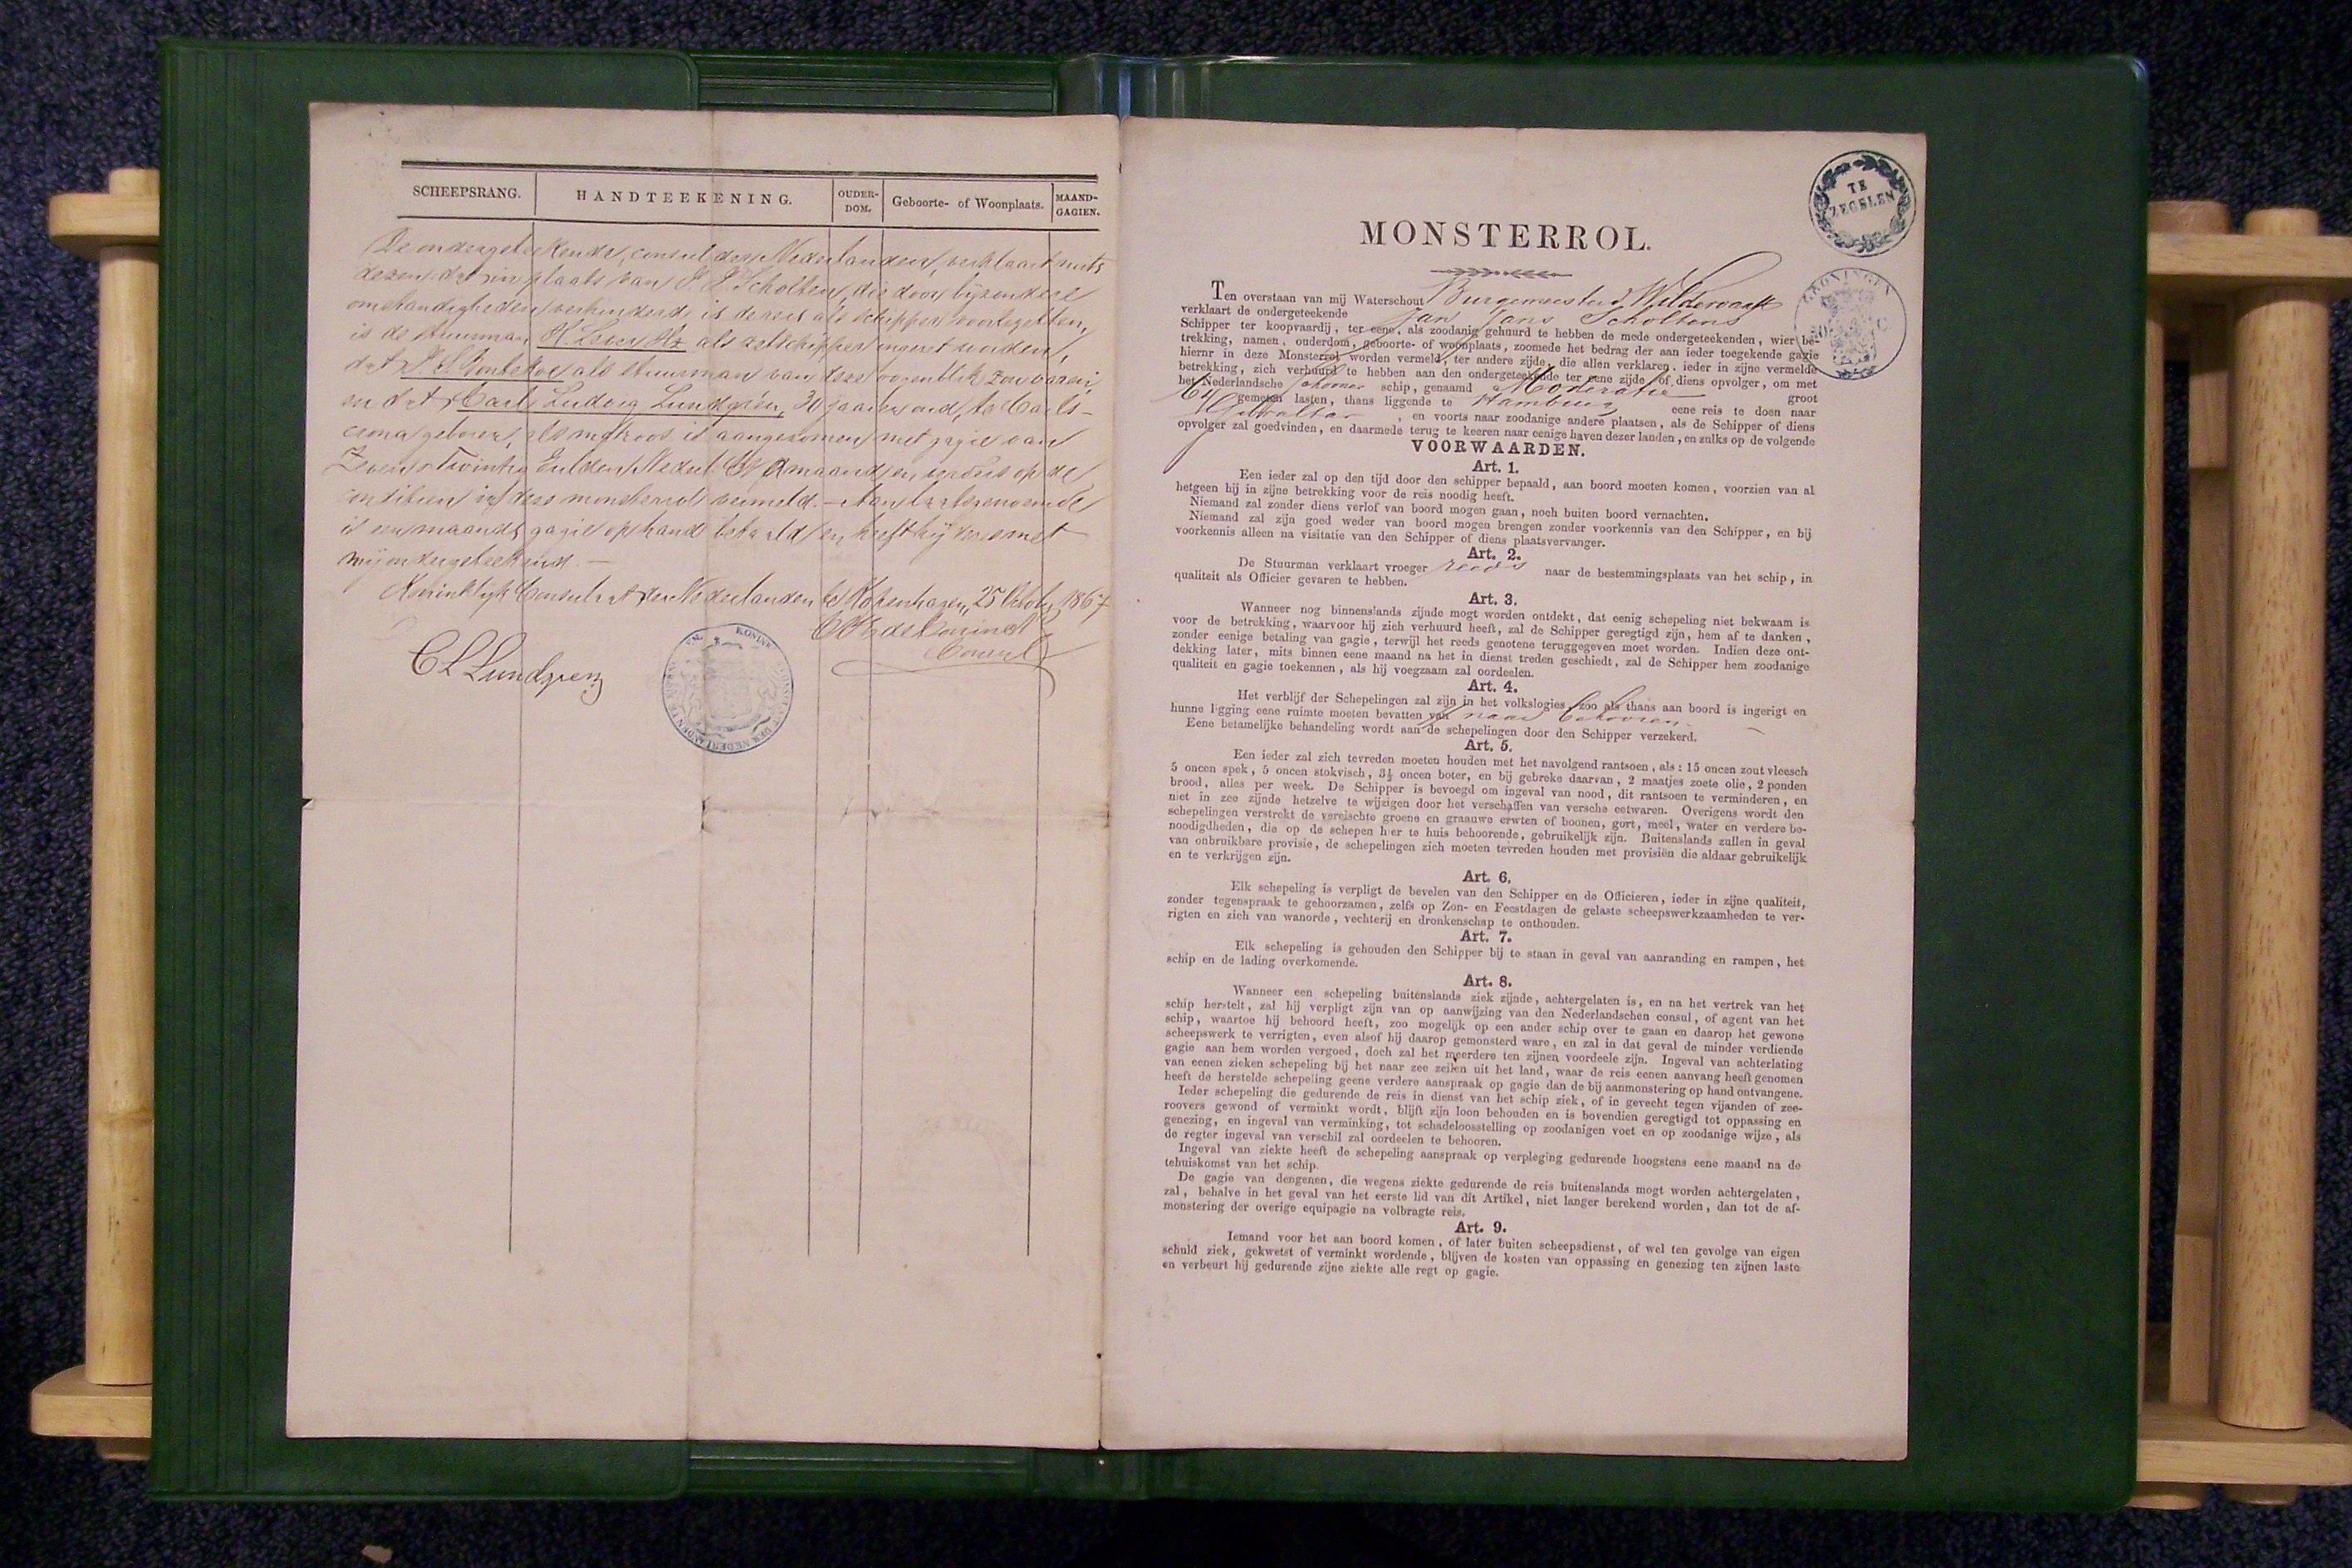 SCHEEPSRANG. HANDTEEKENING. OUDER-DOM. Geboorte- of Woonplaats. MAAND-GAGIEN.
De ondergeteekende, consul der Nederlanden, verklaart mits
dezen dat in plaats van J. J. Scholtens, die door bijzondere
omstandigheden verhinderd is de reis als schipper voortezetten,
is de stuurman H. Hz als zetschipper
dat als stuurman van deze oogenblik zou varen,
en dat Carl Ludvig Lundgrén, 30 jaaren oud, te Carls-
crona geboren, als matroos is aangenomen met gagie van
Zeven & Twintig Gulden Nederl. Ct p maand en verders op de
conditien in deze monsterrol vermeld. – Aan laatstgenoemde
is een maands gagie op hand betaald en heeft hij deze met
mij ondergeteekend. –
Koninklijk Consulaat der Nederlanden te Kopenhagen, 25 October 1867
Consul
C L Lundgren
MONSTERROL.
TE
ZEGELEN
GRONINGEN
Ten overstaan van mij Waterschout Burgemeester d. Wildervank
verklaart de ondergeteekende Jan Jans Scholtens
Schipper ter koopvaardij, ter eene, als zoodanig gehuurd te hebben de mede ondergeteekenden, wier be-
trekking, namen, ouderdom, geboorte- of woonplaats, zoomede het bedrag der aan ieder toegekende gagie
hierur in deze Monsterrol worden vermeld, ter andere zijde, die allen verklaren, ieder in zijne vermelde
betrekking, zich verhuurd te hebben aan den ondergeteekende ter eene zijde of diens opvolger, om met
het Nederlandsche schoner schip, genaamd Moderatie groot
gemeten lasten, thans liggende te Hamburg eene reis te doen naar
Gibraltar, en voorts naar zoodanige andere plaatsen, als de Schipper of diens
opvolger zal goedvinden, en daarmede terug te keeren naar eenige haven dezer landen, en zulks op de volgende
VOORWAARDEN.
Art. 1.
Een ieder zal op den tijd door den schipper bepaald, aan boord moeten komen, voorzien van al
hetgeen hij in zijne betrekking voor de reis noodig heeft.
Niemand zal zonder diens verlof van boord mogen gaan, noch buiten boord vernachten.
Niemand zal zijn goed weder van boord mogen brengen zonder voorkennis van den Schipper, en bij
voorkennis alleen na visitatie van den Schipper of diens plaatsvervanger.
Art. 2.
De Stuurman verklaart vroeger reeds naar de bestemmingsplaats van het schip, in
qualiteit als Officier gevaren te hebben.
Art. 3.
Wanneer nog binnenslands zijnde mogt worden ontdekt, dat eenig schepeling niet bekwaam is
voor de betrekking, waarvoor hij zich verhuurd heeft, zal de Schipper geregtigd zijn, hem af te danken,
zonder eenige betaling van gagie, terwijl het reeds genotene teruggegeven moet worden. Indien deze ont-
dekking later, mits binnen eene maand na het in dienst treden geschiedt, zal de Schipper hem zoodanige
qualiteit en gagie toekennen, als hij voegzaam zal oordeelen.
Art. 4.
Het verblijf der Schepelingen zal zijn in het volkslogies, zoo als thans aan boord is ingerigt en
hunne ligging eene ruimte moeten bevatten van naar behooren
Eene betamelijke behandeling wordt aan de schepelingen door den Schipper verzekerd.
Art. 5.
Een ieder zal zich tevreden moeten houden met het navolgend rantsoen, als: 15 oncen zout vleesch
5 oncen spek, 5 oncen stokvisch, 3½ oncen boter, en bij gebreke daarvan, 2 maatjes zoete olie, 2 ponden
brood, alles per week. De Schipper is bevoegd om ingeval van nood, dit rantsoen te verminderen, en
niet in zee zijnde hetzelve te wijzigen door het verschaffen van versche eetwaren. Overigens wordt den
schepelingen verstrekt de vereischte groene en graauwe erwten of boonen, gort, meel, water en verdere be-
noodigdheden, die op de schepen hier te huis behoorende, gebruikelijk zijn. Buitenslands zullen in geval
van onbruikbare provisie, de schepelingen zich moeten tevreden houden met provisiën die aldaar gebruikelijk
en te verkrijgen zijn.
Art. 6.
Elk schepeling is verpligt de bevelen van den Schipper en de Officieren, ieder in zijne qualiteit,
zonder tegenspraak te gehoorzamen, zelfs op Zon- en Feestdagen de gelaste scheepswerkzaamheden te ver-
rigten en zich van wanorde, vechterij en dronkenschap te onthouden.
Art. 7.
Elk schepeling is gehouden den Schipper bij te staan in geval van aanranding en rampen, het
schip en de lading overkomende.
Art. 8.
Wanneer een schepeling buitenslands ziek zijnde, achtergelaten is, en na het vertrek van het
schip herstelt, zal hij verpligt zijn van op aanwijzing van den Nederlandschen consul, of agent van het
schip, waartoe hij behoord heeft, zoo mogelijk op een ander schip over te gaan en daarop het gewone
scheepswerk te verrigten, even alsof hij daarop gemonsterd ware, en zal in dat geval de minder verdiende
gagie aan hem worden vergoed, doch zal het meerdere ten zijnen voordeele zijn. Ingeval van achterlating
van eenen zieken schepeling bij het naar zee zeilen uit het land, waar de reis eenen aanvang heeft genomen
heeft de herstelde schepeling geene verdere aanspraak op gagie dan de bij aanmonstering op hand ontvangene.
Ieder schepeling die gedurende de reis in dienst van het schip ziek, of in gevecht tegen vijanden of zee-
roovers gewond of verminkt wordt, blijft zijn loon behouden en is bovendien geregtigd tot oppassing en
genezing, en ingeval van verminking, tot schadeloosstelling op zoodanigen voet en op zoodanige wijze, als
de regter ingeval van verschil zal oordeelen te behooren.
Ingeval van ziekte heeft de schepeling aanspraak op verpleging gedurende hoogstens eene maand na de
tehuiskomst van het schip.
De gagie van dengenen, die wegens ziekte gedurende de reis buitenslands mogt worden achtergelaten,
zal, behalve in het geval van het eerste lid van dit Artikel, niet langer berekend worden, dan tot de af-
monstering der overige equipagie na volbragte reis.
Art. 9.
Iemand voor het aan boord komen, of later buiten scheepsdienst, of wel ten gevolge van eigen
schuld ziek, gekwetst of verminkt wordende, blijven de kosten van oppassing en genezing ten zijnen laste
en verbeurt hij gedurende zijne ziekte alle regt op gagie.